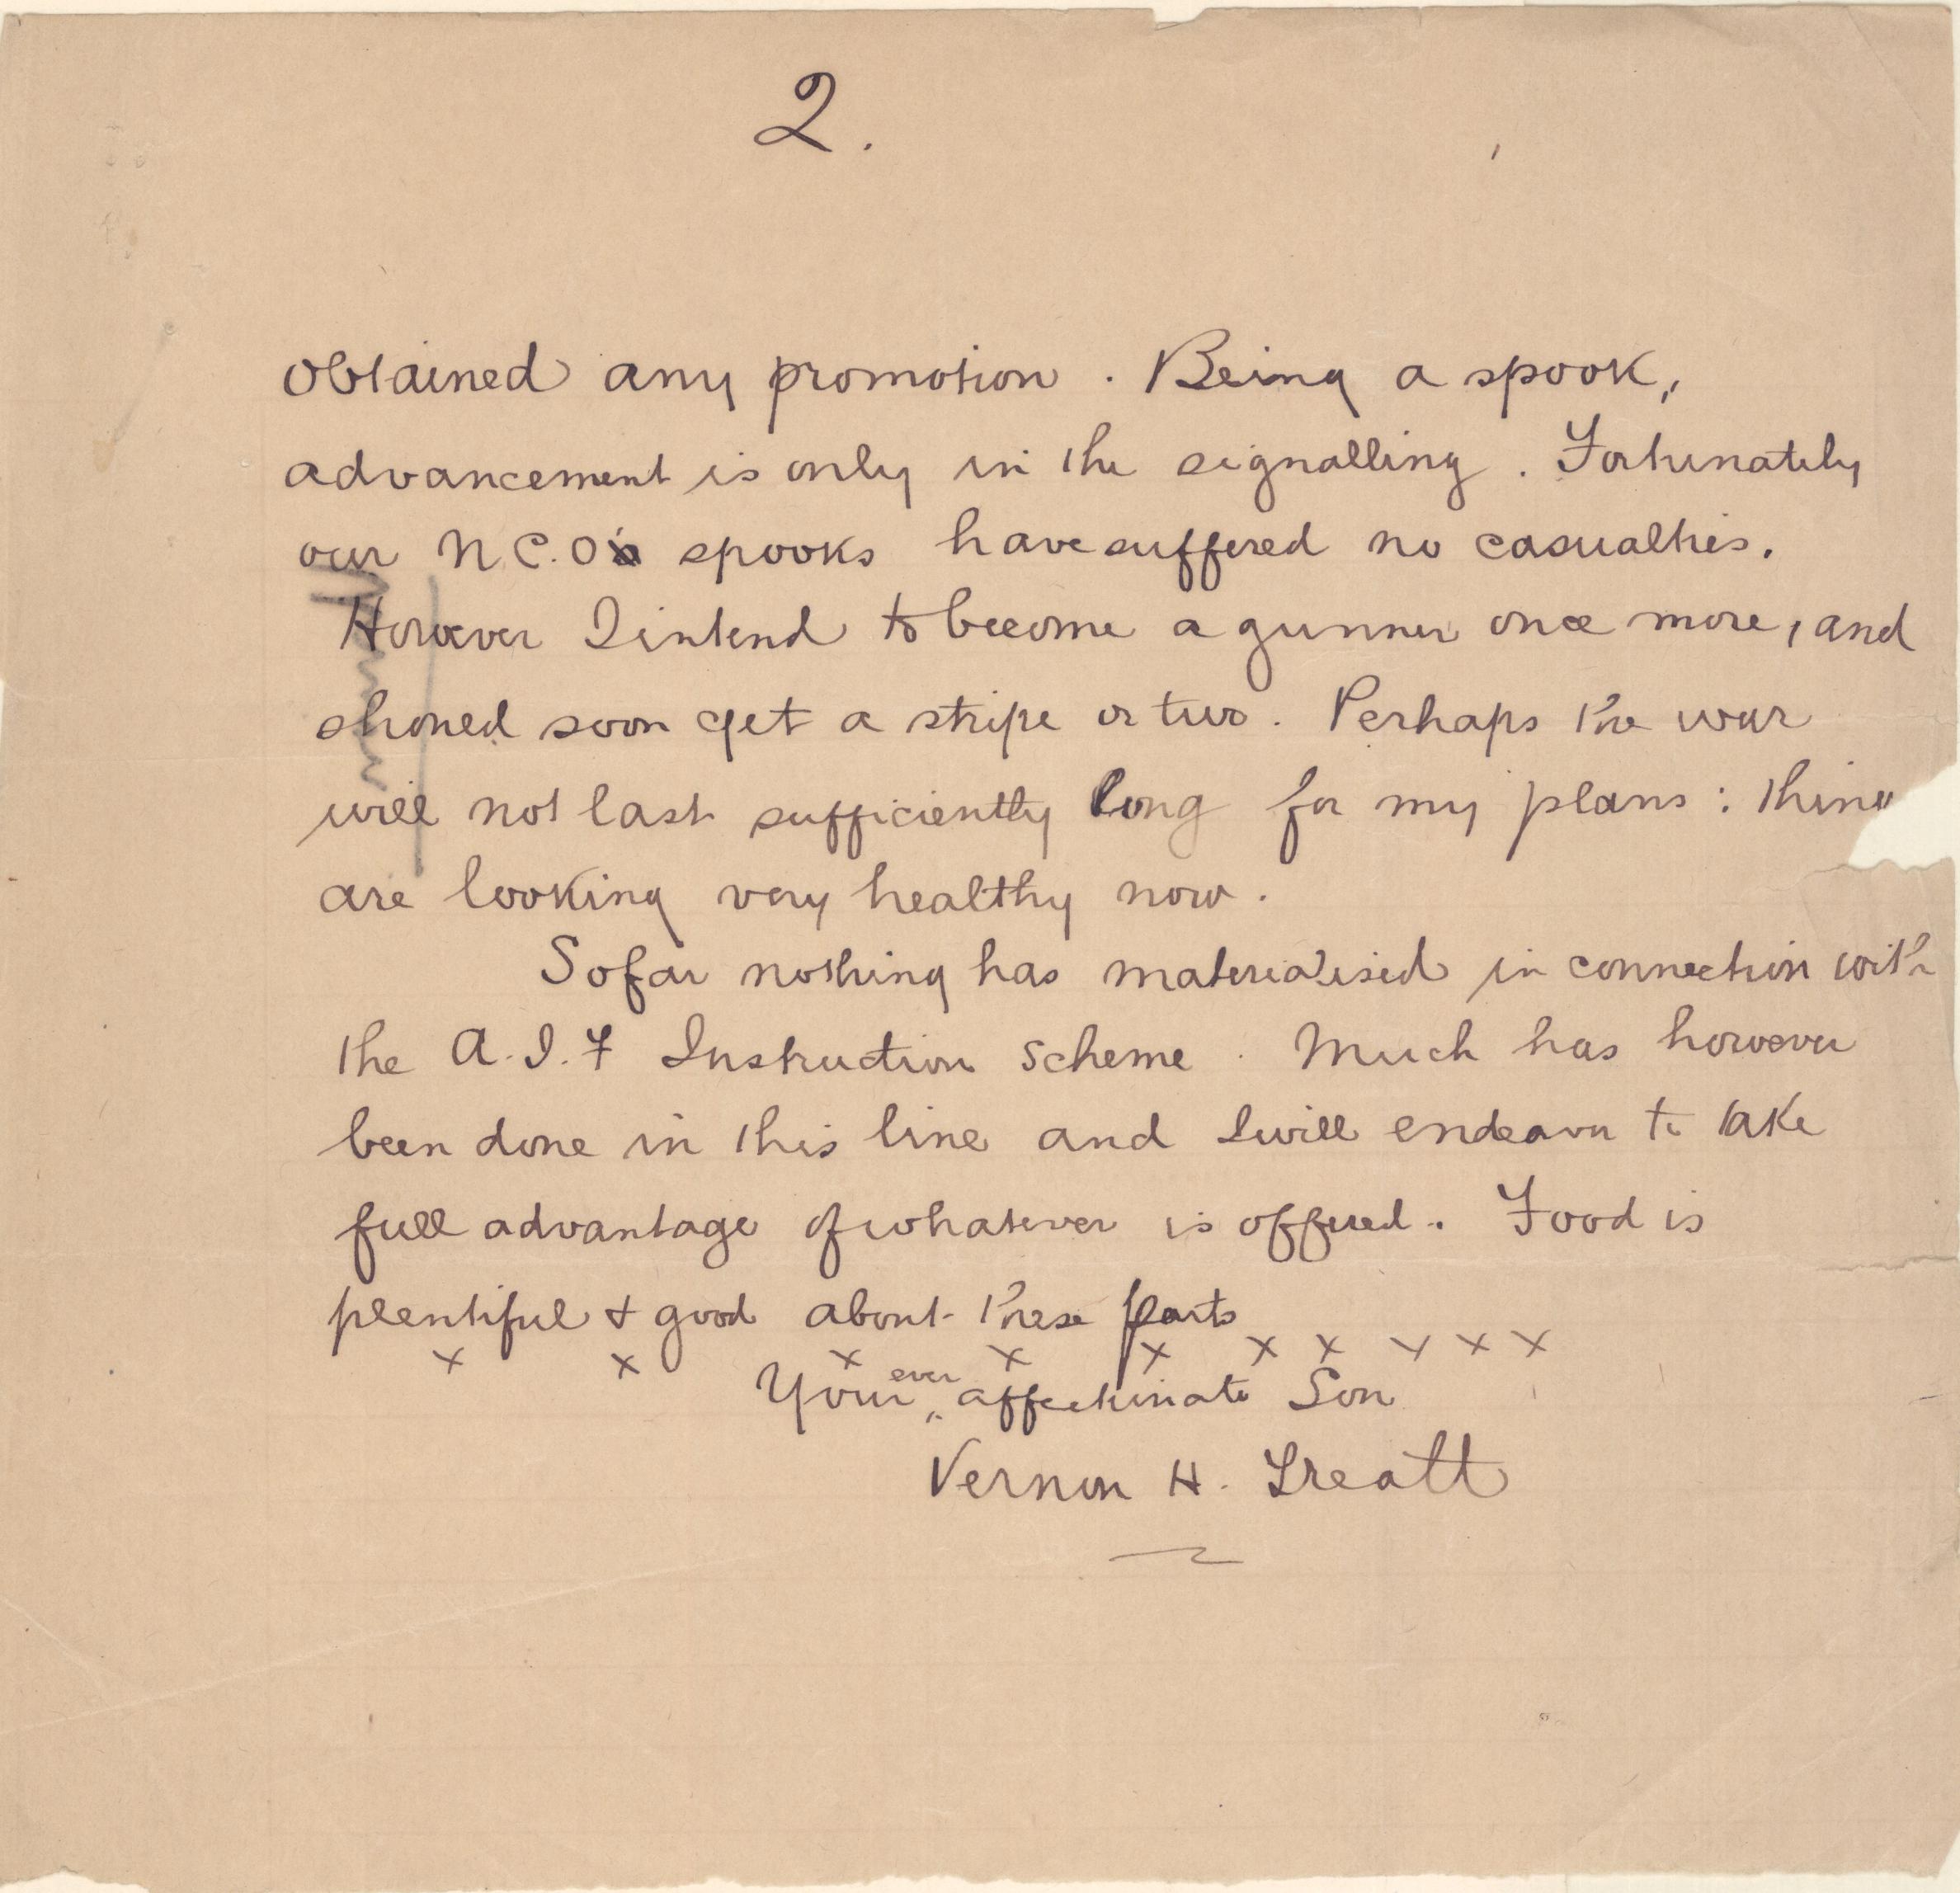 2.
obtained any promotion. Being a spook,
advancement is only in the signalling. Fortunately
our N.C.O's spooks have suffered no casualties.
However I intend to become a gunner once more, and
should soon get a stripe or two. Perhaps the war
will not last sufficiently long for my plans: thing
are looking very healthy now.
So far nothing has materialised in connection with
the A.I.F Instruction Scheme. Much has however
been done in this line and I will endeavor to take
full advantage of whatever is offered. Food is
plentiful & good about these parts
x x x x x x x x x x
Your ever affectionate Son
Vernon H. Treatt